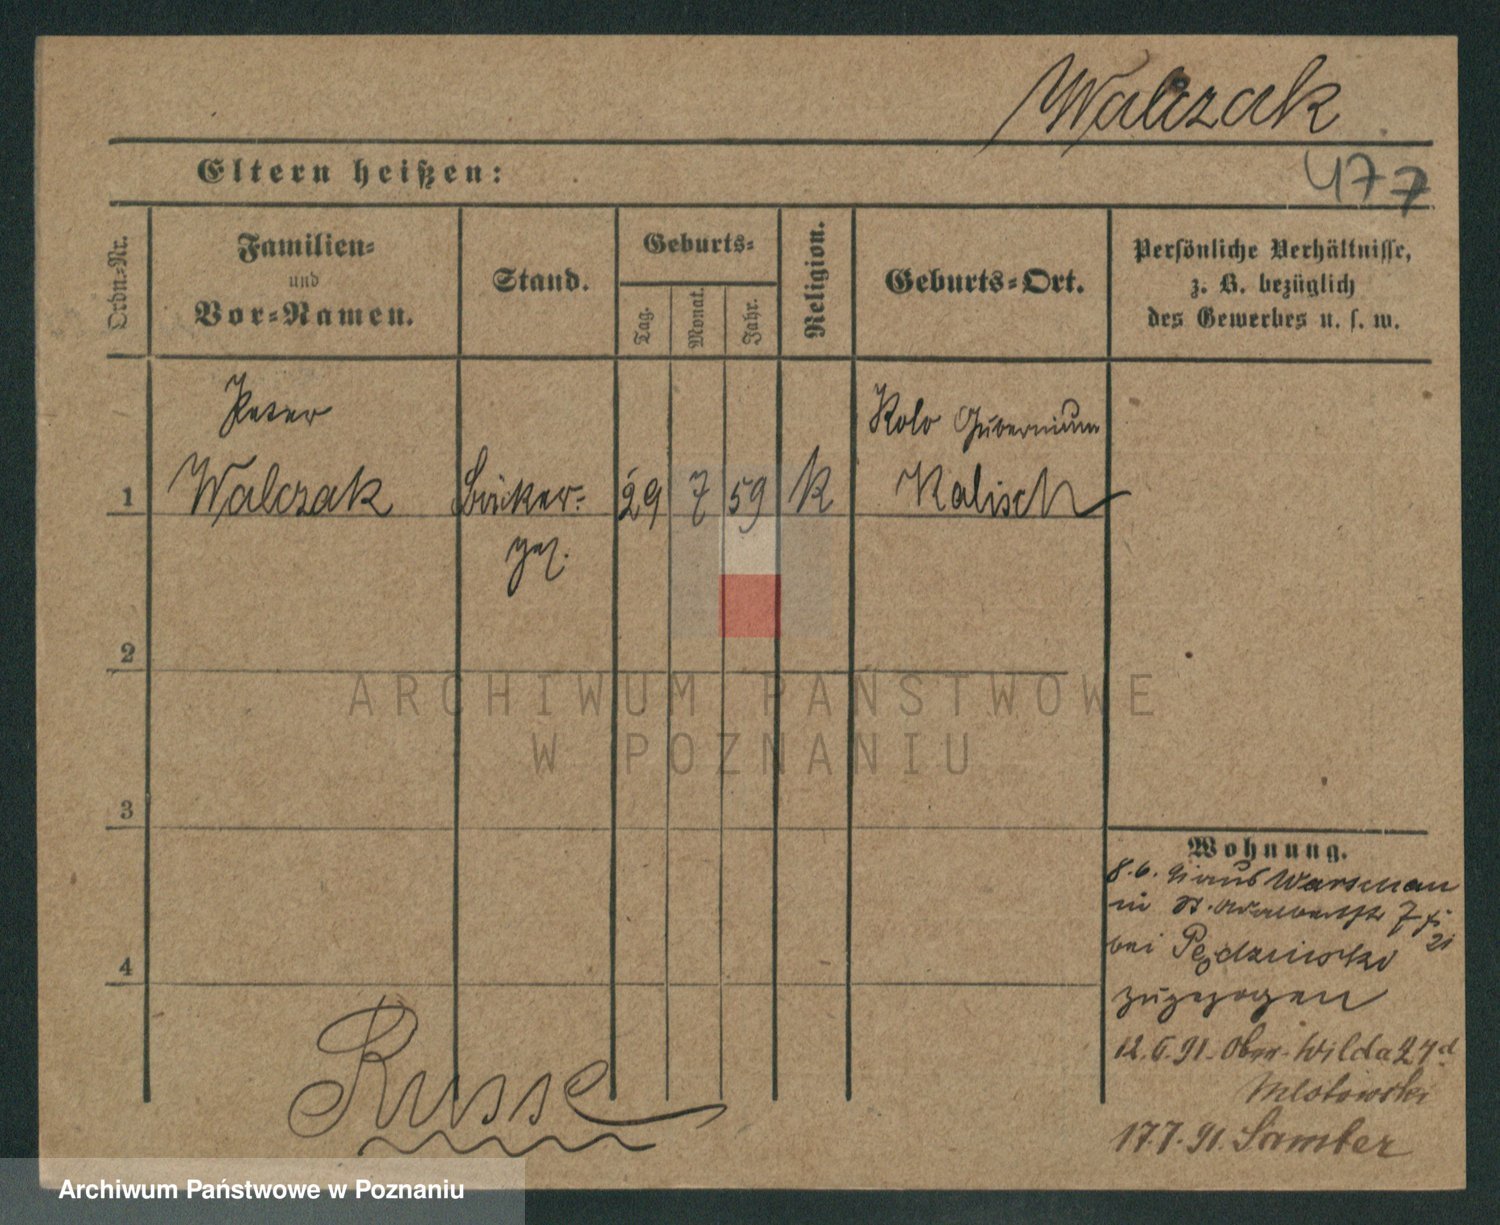 Walczak
477
Eltern heißen:
Ordn.=Nr.
Familien=
und
Vor=Namen.
Stand.
Geburts=
Tag.
Monat.
Jahr.
Religion.
Geburts=Ort.
Persönliche Verhältnisse,
z. B. bezüglich
des Gewerbes u. s. w.
Peter
Kolo Gubernium
1 Walczak Bäcker= 29 7 59 K Kalisch
ges.
2
3
4
ARCHIWUM PAŃSTWOWE
W POZNANIU
Wohnung.
8.6. 91 aus Warschau
in St. Adalbertstr 7
bei
zugezogen
12.6.91. Ober-Wilda 24
Mlotowski
17.7.91. Samter
Russe
Archiwum Państwowe w Poznaniu